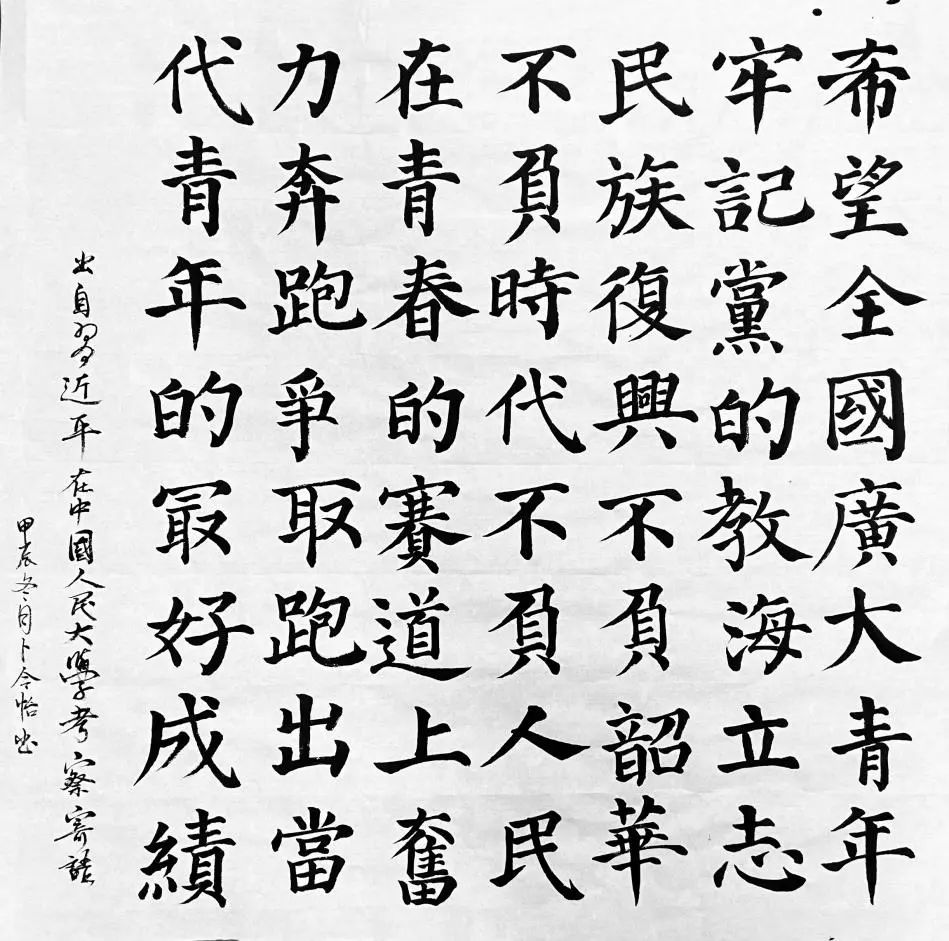 希望全國廣大青年
牢記黨的教海立志
民族復興不負韶華
不負時代不負人民
在青春的賽道上奮
力奔跑爭取跑出當
代青年的最好成績
出自習近平在中國人民大學考察寄語
甲辰冬月卜令怡書